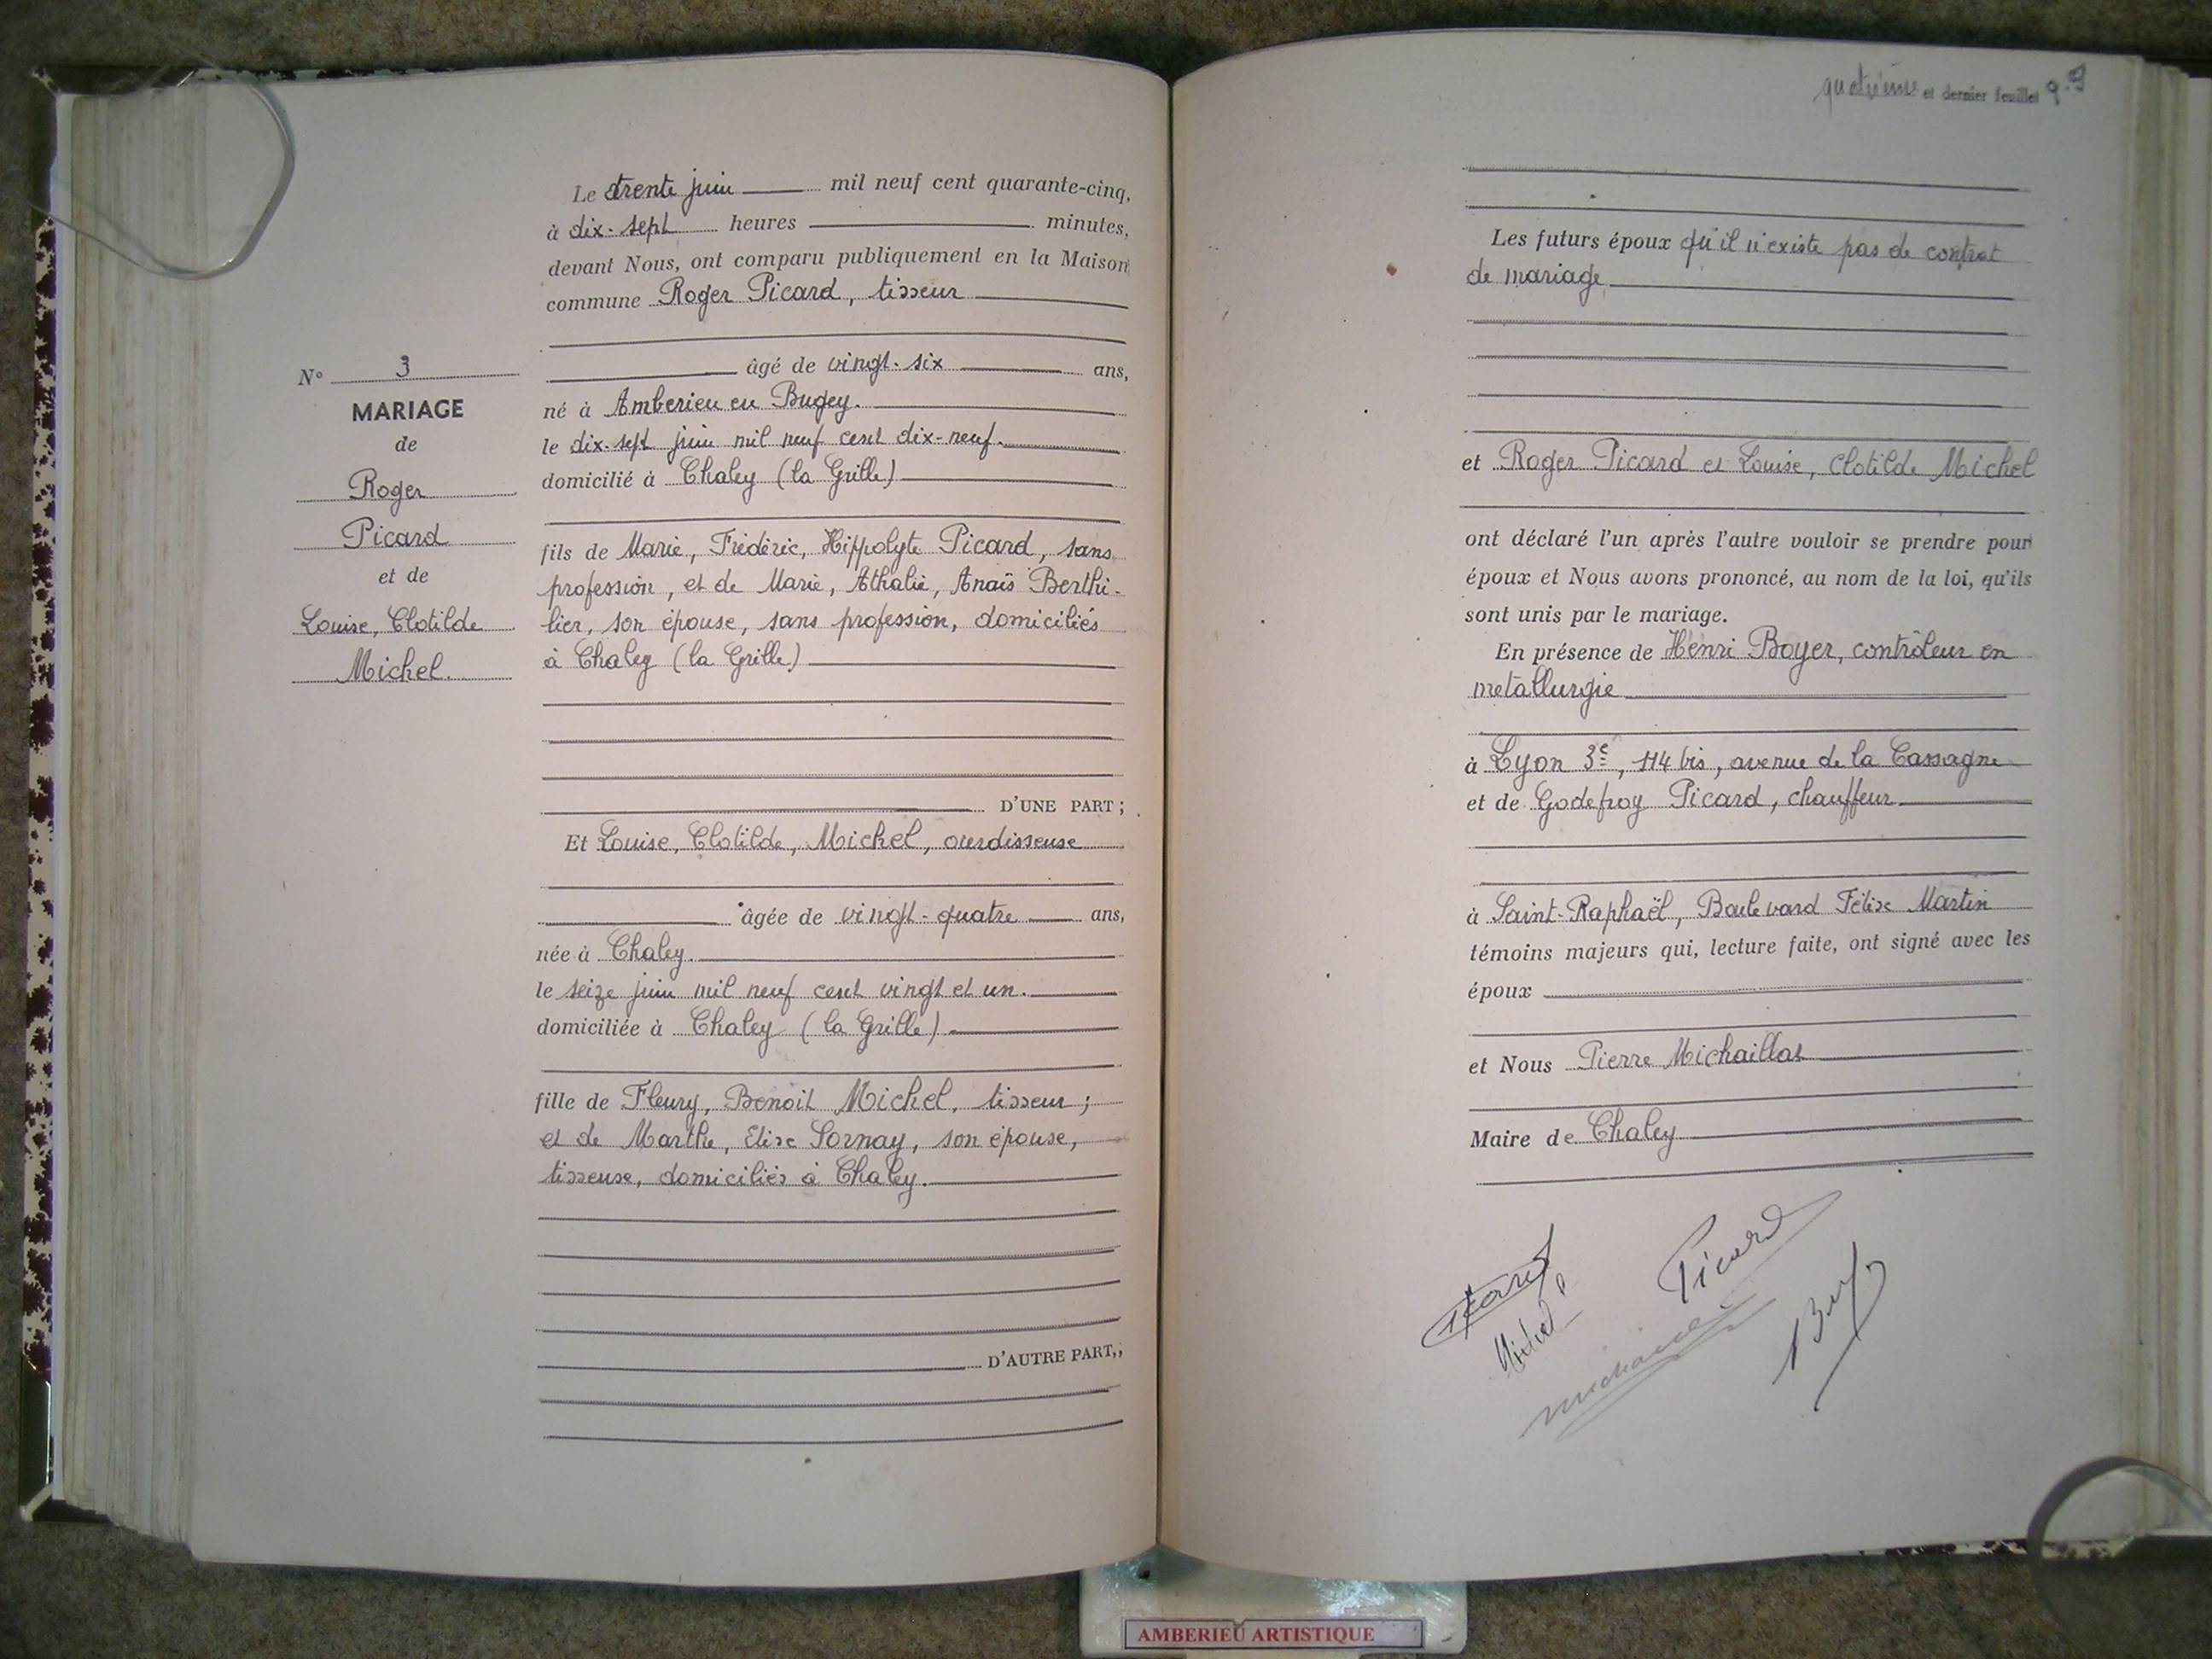 N° 3
MARIAGE
de
Roger
Picard
et de
Louise, Clotilde
Michel.
Le trente juin mil neuf cent quarante-cinq,
à dix-sept heures minutes,
devant Nous, ont comparu publiquement en la Maison
commune Roger Picard, tisseur
âgé de vingt-six ans,
né à Amberieu en Bugey.
le dix-sept juin mil neuf cent dix-neuf.
domicilié à Chaley (la Grille)
fils de Marie, Frédéric, Hippolyte Picard, sans
profession, et de Marie, Athalie, Anaïs Berthi-
lier, son épouse, sans profession, domiciliés
à Chaley (la Grille)
D'UNE PART ;
Et Louise, Clotilde, Michel, ourdisseuse
âgée de vingt-quatre ans,
née à Chaley.
le seize juin mil neuf cent vingt et un.
domiciliée à Chaley (la Grille)
fille de Fleury, Benoit Michel, tisseur ;
et de Marthe, Elise Sornay, son épouse,
tisseuse, domiciliés à Chaley.
D'AUTRE PART,;
quatrième et dernier feuillet
Les futurs époux qu'il n'existe pas de contrat
de mariage
et Roger Picard et Louise, Clotilde Michel
ont déclaré l'un après l'autre vouloir se prendre pour
époux et Nous avons prononcé, au nom de la loi, qu'ils
sont unis par le mariage.
En présence de Henri Boyer, contrôleur en
metallurgie
à Lyon 3e, 114 bis, avenue de la Cassagne
et de Godefroy Picard, chauffeur
à Saint-Raphaël, Boulevard Félix Martin
témoins majeurs qui, lecture faite, ont signé avec les
époux
et Nous Pierre Michaillat
Maire de Chaley
Picard
Michel
AMBERIEU ARTISTIQUE